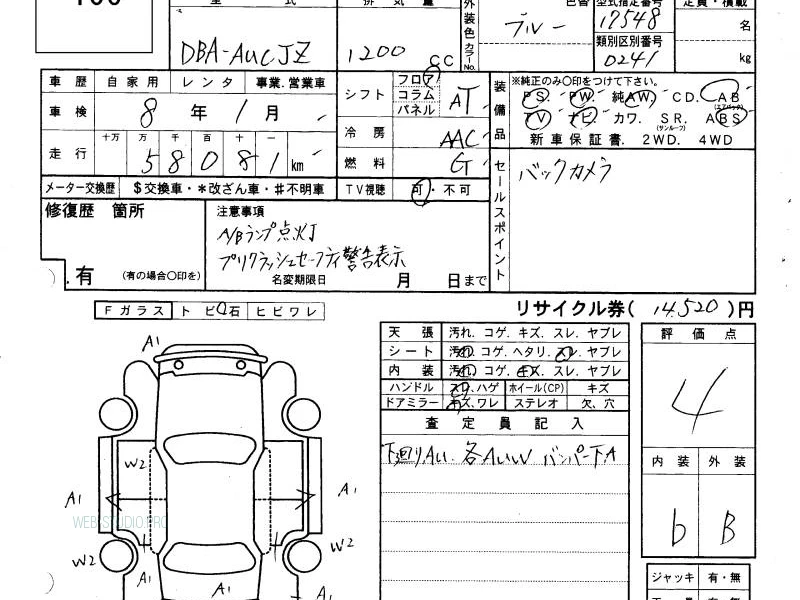 型 式 排気量 外装色 カラーNo. 色替 型式指定番号 定員・積載
ブルー 17548 名
DBA-AUCJZ 1200 CC 類別区別番号 0241 kg
車歴 自家用 レンタ 事業.営業車
シフト フロア コラム パネル AT
車検 8 年 1 月
冷房 AAC
走行 十万 万 千 百 十 一
5 8 0 8 1 km
燃料 G
メーター交換歴 $交換車・*改ざん車・#不明車 TV視聴 可・不可
装備品 ※純正のみ〇印をつけて下さい。
PS. PW. 純AW. CD. AB (エアバック)
TV ナビ カワ. SR. (サンルーフ) ABS
新車保証書. 2WD. 4WD
セールスポイント バックカメラ
修復歴 箇所
.有 (有の場合〇印を)
注意事項
A/Bランプ点灯
プリクラッシュセーフティ警告表示
名変期限日 月 日まで
Fガラス トビ石 ヒビワレ
リサイクル券( 14,520 )円
天張 汚れ. コゲ. キズ. スレ. ヤブレ
シート 汚れ. コゲ. ヘタリ. スレ. ヤブレ
内装 汚れ. コゲ. キズ. スレ. ヤブレ
ハンドル スレ.ハゲ ホイール(CP) キズ
ドアミラー キズ.ワレ ステレオ 欠、穴
査定員記入
下廻りAU. 各AUW バンパー下A
評価点
4
内装 外装
b B
ジャッキ 有・無
A1
W2
A1
A1
W2
W2
A1
A1
A1
WEB-STUDIO.PRO